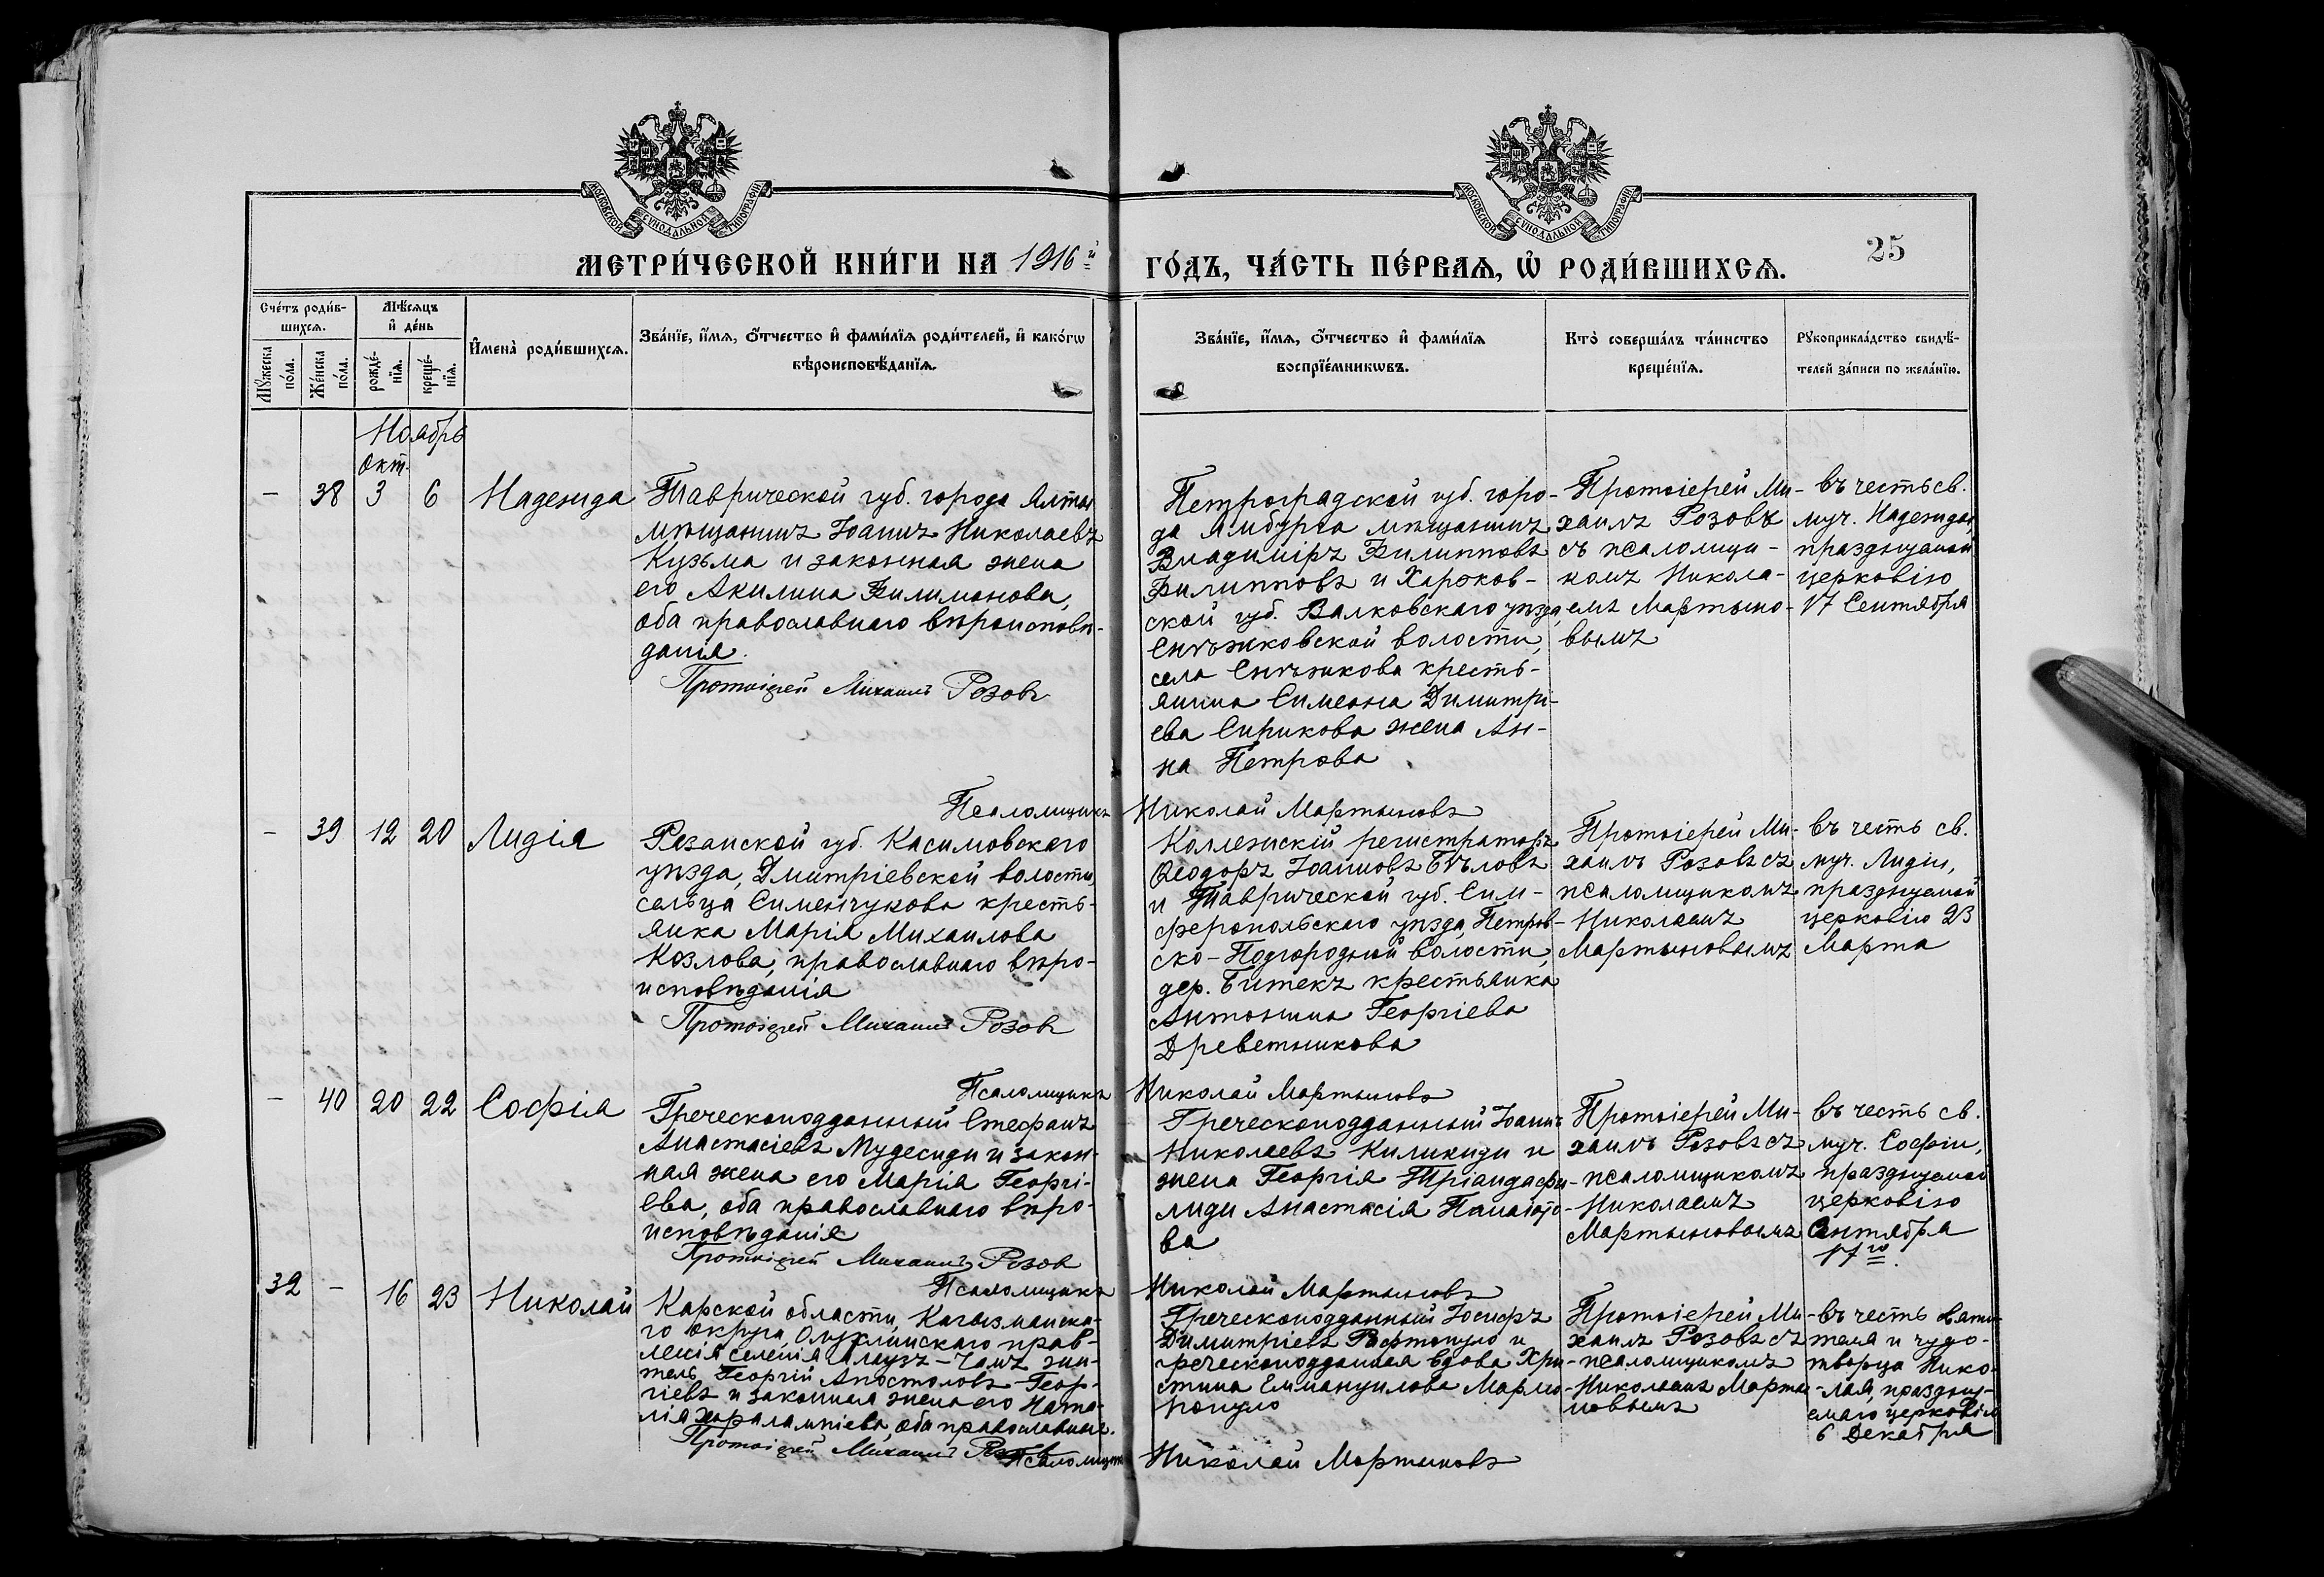 МОСКОВСКОЙ СѴНОДАЛЬНОЙ ТИПОГРАФІИ
МОСКОВСКОЙ СѴНОДАЛЬНОЙ ТИПОГРАФІИ
МЕТРИ́ЧЕСКОЙ КНИ́ГИ НА 1916й
ГО́ДЪ, ЧА́СТЬ ПЕ́РВАѦ, Ѡ҆ РОДИ́ВШИХСѦ.
25
Сче́тъ роди́в-
шихсѧ.
Мѣ́сѧцъ
и҆ де́нь
Мꙋ́жеска
по́ла.
Же́нска
по́ла.
рожде́-
нїѧ.
креще́-
нїѧ.
И҆мена̀ роди́вшихсѧ.
Зва́нїе, и҆́мѧ, ѻ҆́тчество и҆ фами́лїѧ роди́телей, и҆ како́гѡ
вѣроисповѣ́данїѧ.
Зва́нїе, и҆́мѧ, ѻ҆́тчество и҆ фами́лїѧ
воспрїе́мникѡвъ.
Кто̀ соверша́лъ та́инство
креще́нїѧ.
Рꙋкоприкла́дство свидѣ́-
телей за́писи по жела́нїю.
Ноябрь
Окт.
– 38 3 6 Надежда
Таврической губ. города Ялты
мѣщанинъ Іоаннъ Николаевъ
Кузьма и законная жена
его Акилина Филимонова,
оба православнаго вѣроисповѣ-
данія.
Протоіерей Михаилъ Розовъ
Петроградской губ. горо-
да Ямбурга мѣщанинъ
Владиміръ Филипповъ
Филипповъ и Харьков-
ской губ. Валковскаго уѣзда,
Снѣжковской волости,
села Снѣжкова кресть-
янина Симеона Димитрі-
ева Сирикова жена Ан-
на Петрова
Протоіерей Ми-
хаилъ Розовъ
съ псаломщи-
комъ Никола-
емъ Мартыно-
вымъ
въ честь св.
муч. Надежды,
празднуемой
церковію
17 Сентября
Псаломщикъ Николай Мартыновъ
– 39 12 20 Лидія
Рязанской губ. Касимовскаго
уѣзда, Дмитріевской волости,
сельца Сименчукова кресть-
янка Марія Михаилова
Козлова, православнаго вѣро-
исповѣданія
Протоіерей Михаилъ Розовъ
Коллежскій регистраторъ
Ѳеодоръ Іоанновъ Бѣловъ
и Таврической губ. Сим-
феропольскаго уѣзда, Петров-
ско-Подгородней волости,
дер. Битекъ крестьянка
Антонина Георгіева
Древетникова
Протоіерей Ми-
хаилъ Розовъ съ
псаломщикомъ
Николаемъ
Мартыновымъ
въ честь св.
муч. Лидіи,
празднуемой
церковію 23
Марта
Псаломщикъ Николай Мартыновъ
– 40 20 22 Софія
Греческоподданный Стефанъ
Анастасіевъ Мудесиди и закон-
ная жена его Марія Георгі-
ева, оба православнаго вѣро-
исповѣданія
Протоіерей Михаилъ Розовъ
Греческоподданный Іоаннъ
Николаевъ Киликиди и
жена Георгія Тріандафи-
лиди Анастасія Панаіото-
ва
Протоіерей Ми-
хаилъ Розовъ съ
псаломщикомъ
Николаемъ
Мартыновымъ
въ честь св.
муч. Софіи,
празднуемой
церковію
Сентября
17го.
Псаломщикъ Николай Мартыновъ
32 – 16 23 Николай
Карской области, Кагызманска-
го округа, прав-
ленія селенія -Чамъ жи-
тель Георгій Апостоловъ Геор-
гіевъ и законная жена его Ната-
лія Харалампіева, оба православные.
Протоіерей Михаилъ Розовъ
Греческоподданный Іосифъ
Димитріевъ и
греческоподданная вдова Хри-
стина Еммануилова Мармо-
популо
Протоіерей Ми-
хаилъ Розовъ съ
псаломщикомъ
Николаемъ Марты-
новымъ
въ честь Святи-
теля и чудо-
творца Нико-
лая, праздну-
емаго церковію
6 Декабря
Псаломщикъ Николай Мартыновъ